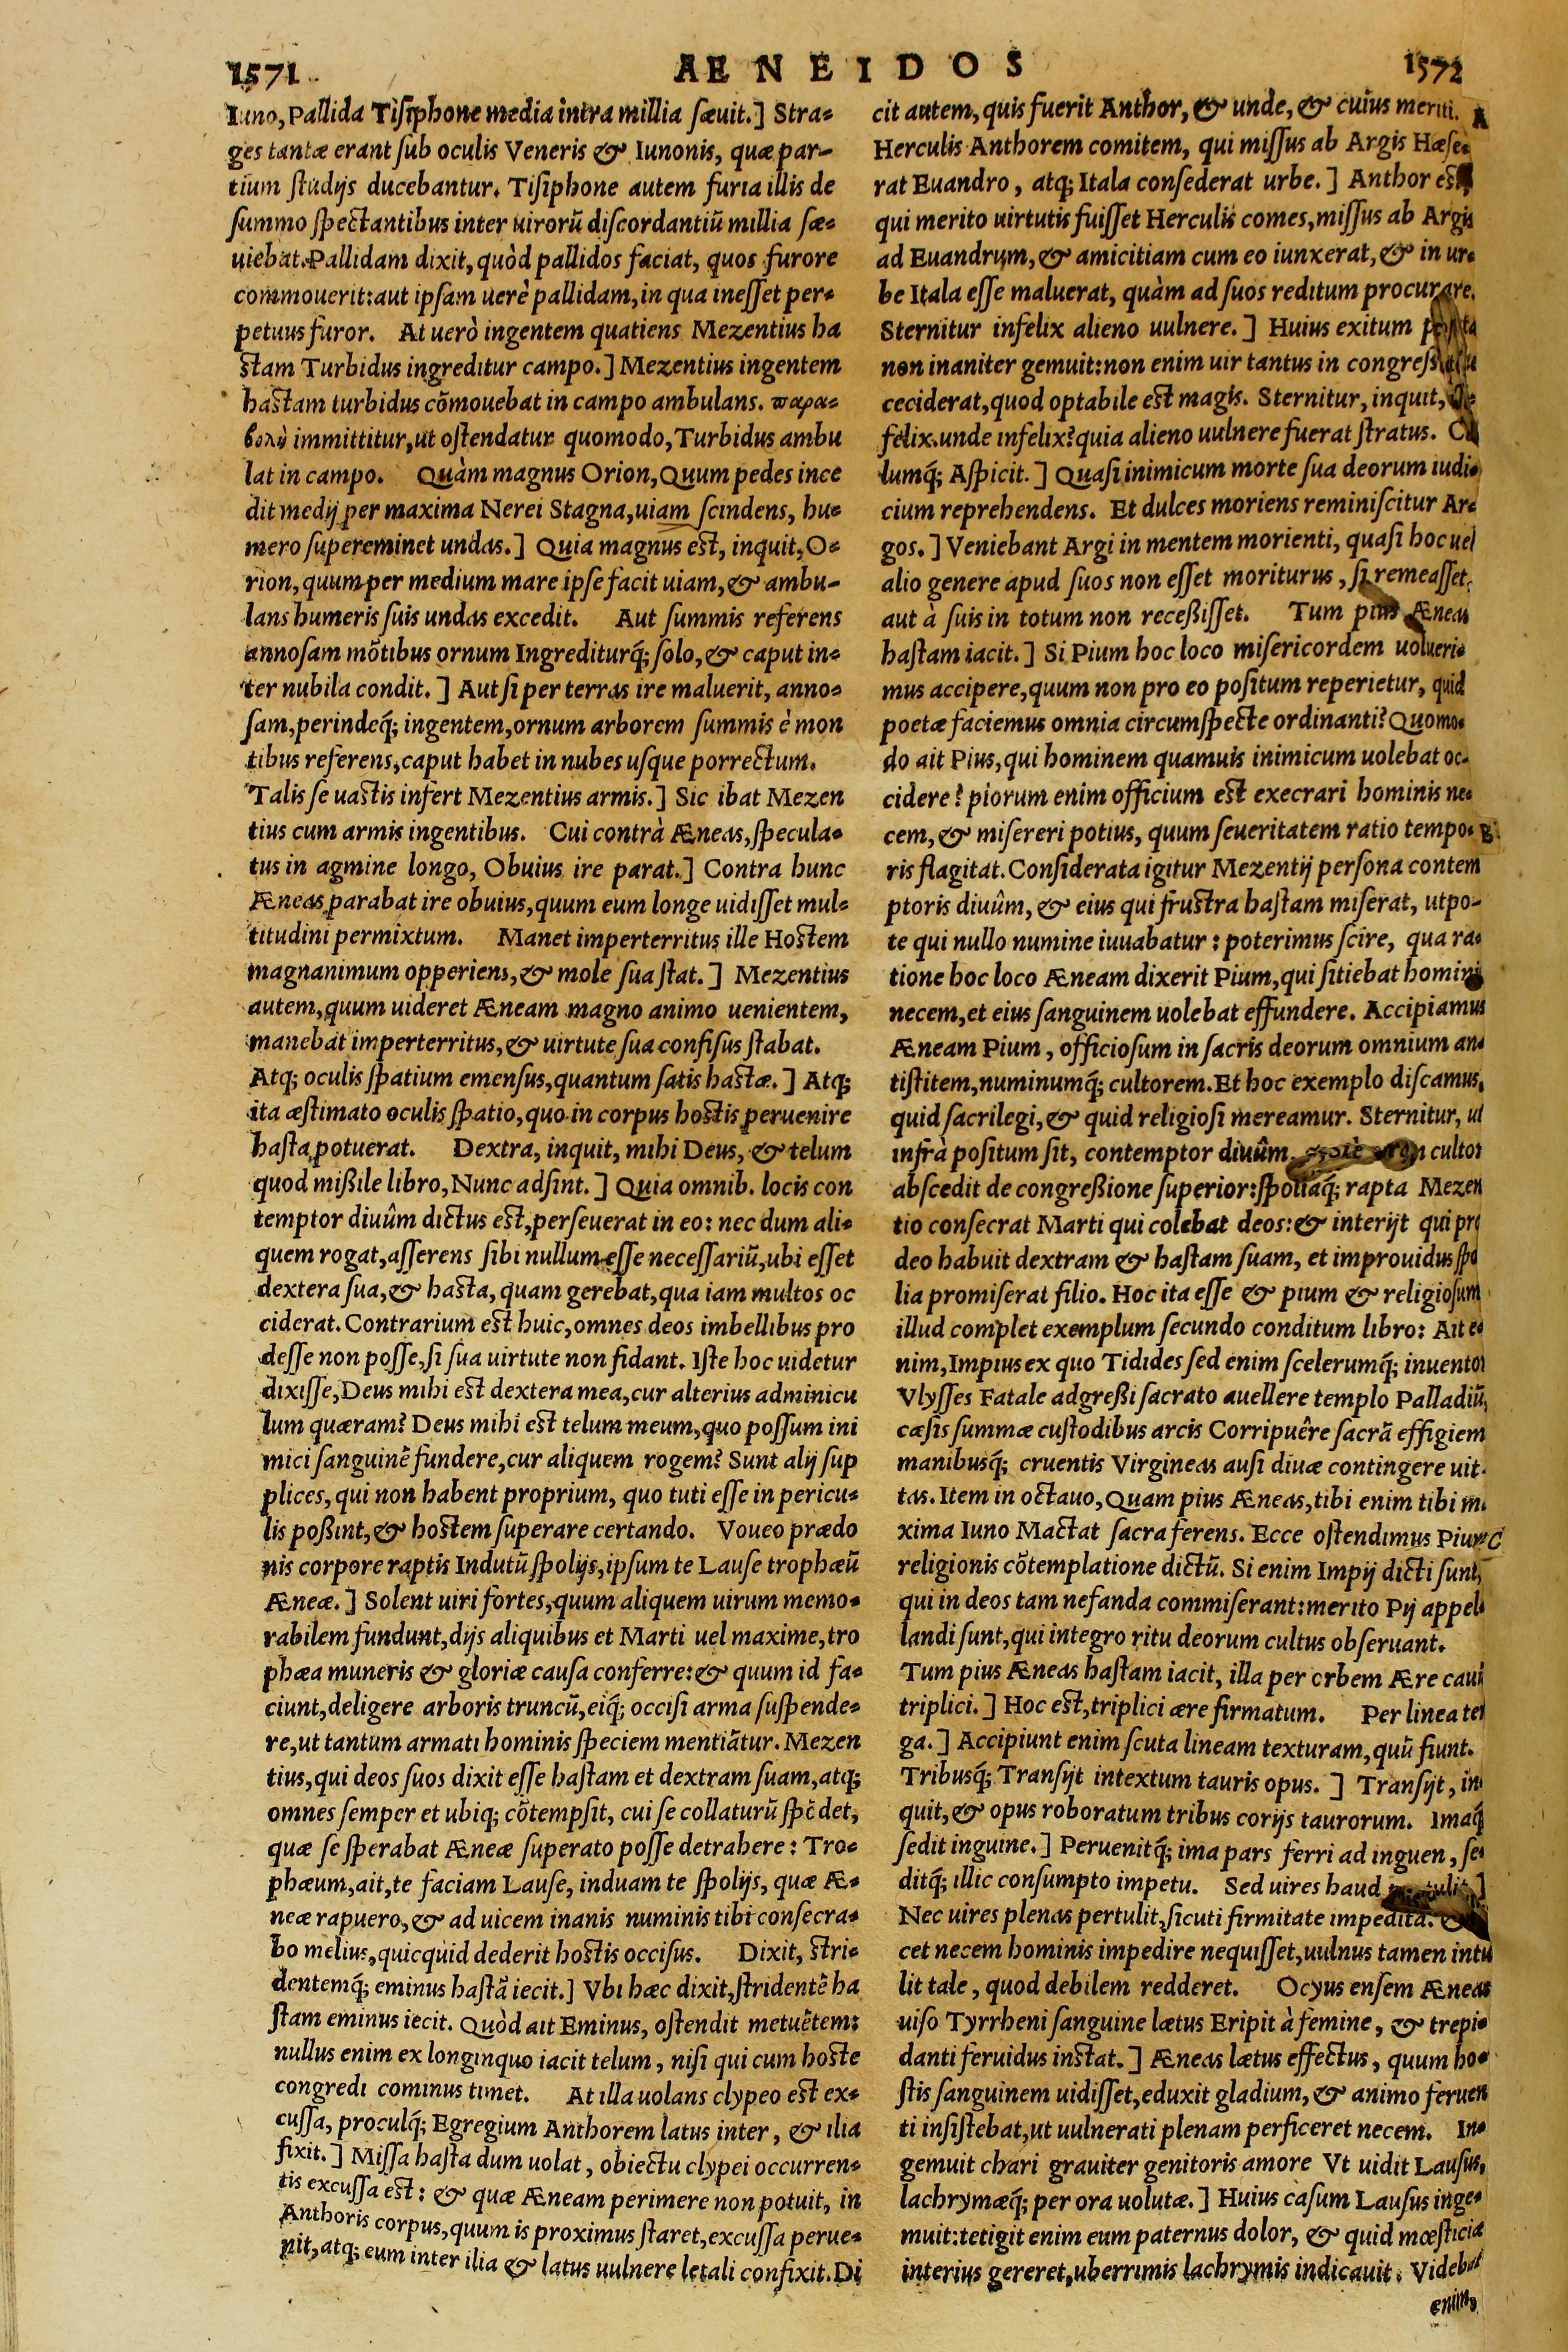 1571
AENEIDOS
1572
Iuno, Pallida Tisiphone media intra millia sæuit.] Stra-
ges tantæ erant sub oculis Veneris & Iunonis, quæ par-
tium studijs ducebantur. Tisiphone autem furia illis de
summo spectantibus inter uirorũ discordantiũ millia sæ-
uiebat. Pallidam dixit, quòd pallidos faciat, quos furore
commouerit: aut ipsam uerè pallidam, in qua inesset per-
petuus furor. At uerò ingentem quatiens Mezentius ha
stam Turbidus ingreditur campo.] Mezentius ingentem
hastam turbidus cõmouebat in campo ambulans. παρα-
βολὴ immittitur, ut ostendatur quomodo, Turbidus ambu
lat in campo. Quàm magnus Orion, Quum pedes ince
dit medij per maxima Nerei Stagna, uiam scindens, hu-
mero supereminet undas.] Quia magnus est, inquit, O-
rion, quum per medium mare ipse facit uiam, & ambu-
lans humeris suis undas excedit. Aut summis referens
annosam mõtibus ornum Ingrediturq́; solo, & caput in-
ter nubila condit.] Aut si per terras ire maluerit, anno-
sam, perindeq́; ingentem, ornum arborem summis è mon
tibus referens, caput habet in nubes usque porrectum.
Talis se uastis infert Mezentius armis.] Sic ibat Mezen
tius cum armis ingentibus. Cui contrà Æneas, specula-
tus in agmine longo, Obuius ire parat.] Contra hunc
Æneas parabat ire obuius, quum eum longe uidisset mul-
titudini permixtum. Manet imperterritus ille Hostem
magnanimum opperiens, & mole sua stat.] Mezentius
autem, quum uideret Æneam magno animo uenientem,
manebat imperterritus, & uirtute sua confisus stabat.
Atq; oculis spatium emensus, quantum satis hastæ.] Atq;
ita æstimato oculis spatio, quo in corpus hostis peruenire
hasta potuerat. Dextra, inquit, mihi Deus, & telum
quod mißile libro, Nunc adsint.] Quia omnib. locis con
temptor diuûm dictus est, perseuerat in eo: nec dum ali-
quem rogat, asserens sibi nullum esse necessariũ, ubi esset
dextera sua, & hasta, quam gerebat, qua iam multos oc
ciderat. Contrarium est huic, omnes deos imbellibus pro
desse non posse, si sua uirtute non fidant. Iste hoc uidetur
dixisse, Deus mihi est dextera mea, cur alterius adminicu
lum quæram? Deus mihi est telum meum, quo possum ini
mici sanguinẽ fundere, cur aliquem rogem? Sunt alij sup
plices, qui non habent proprium, quo tuti esse in pericu-
lis poßint, & hostem superare certando. Voueo prædo
nis corpore raptis Indutũ spolijs, ipsum te Lause trophæũ
Æneæ.] Solent uiri fortes, quum aliquem uirum memo-
rabilem fundunt, dijs aliquibus et Marti uel maxime, tro
phæa muneris & gloriæ causa conferre: & quum id fa-
ciunt, deligere arboris truncũ, eiq́; occisi arma suspende-
re, ut tantum armati hominis speciem mentiãtur. Mezen
tius, qui deos suos dixit esse hastam et dextram suam, atq;
omnes semper et ubiq; cõtempsit, cui se collaturũ spõdet,
quæ se sperabat Æneæ superato posse detrahere: Tro-
phæum, ait, te faciam Lause, induam te spolijs, quæ Æ-
neæ rapuero, & ad uicem inanis numinis tibi consecra-
bo melius, quicquid dederit hostis occisus. Dixit, stri-
dentemq́; eminus hastã iecit.] Vbi hæc dixit, stridentẽ ha
stam eminus iecit. Quòd ait Eminus, ostendit metuẽtem:
nullus enim ex longinquo iacit telum, nisi qui cum hoste
congredi cominus timet. At illa uolans clypeo est ex-
cussa, proculq́; Egregium Anthorem latus inter, & ilia
fixit.] Missa hasta dum uolat, obiectu clypei occurren-
tis excussa est: & quæ Æneam perimere non potuit, in
Anthoris corpus, quum is proximus staret, excussa perue-
nit, atq; eum inter ilia & latus uulnere letali confixit. Di
cit autem, quis fuerit Anthor, & unde, & cuius meriti. A
Herculis Anthorem comitem, qui missus ab Argis Hæse-
rat Euandro, atq; Itala consederat urbe.] Anthor est,
qui merito uirtutis fuisset Herculis comes, missus ab Argis
ad Euandrum, & amicitiam cum eo iunxerat, & in ur-
be Itala esse maluerat, quàm ad suos reditum procurare.
Sternitur infelix alieno uulnere.] Huius exitum
non inaniter gemuit: non enim uir tantus in
ceciderat, quod optabile est magis. Sternitur, inquit,
felix. unde infelix? quia alieno uulnere fuerat stratus. Cæ
lumq́; Aspicit.] Quasi inimicum morte sua deorum iudi-
cium reprehendens. Et dulces moriens reminiscitur Ar-
gos.] Veniebant Argi in mentem morienti, quasi hoc uel
alio genere apud suos non esset moriturus, si remeasset,
aut à suis in totum non receßisset. Tum pius Æneas
hastam iacit.] Si Pium hoc loco misericordem uolueri-
mus accipere, quum non pro eo positum reperietur, quid
poetæ faciemus omnia circumspecte ordinanti? Quomo-
do ait Pius, qui hominem quamuis inimicum uolebat oc-
cidere? piorum enim officium est execrari hominis ne-
cem, & misereri potius, quum seueritatem ratio tempo- B
ris flagitat. Considerata igitur Mezentij persona contem
ptoris diuûm, & eius qui frustra hastam miserat, utpo-
te qui nullo numine iuuabatur: poterimus scire, qua ra-
tione hoc loco Æneam dixerit Pium, qui sitiebat hominis
necem, et eius sanguinem uolebat effundere. Accipiamus
Æneam Pium, officiosum in sacris deorum omnium an-
tistitem, numinumq́; cultorem. Et hoc exemplo discamus,
quid sacrilegi, & quid religiosi mereamur. Sternitur, ut
infrà positum sit, contemptor diuûm, cultor
abscedit de congreßione superior: spoliaq́; rapta Mezen
tio consecrat Marti qui colebat deos: & interijt qui pro
deo habuit dextram & hastam suam, et improuidus spo
lia promiserat filio. Hoc ita esse & pium & religiosum
illud complet exemplum secundo conditum libro: Ait e-
nim, Impius ex quo Tidides sed enim scelerumq́; inuentor
Vlysses Fatale adgreßi sacrato auellere templo Palladiũ,
cæsis summæ custodibus arcis Corripuêre sacrã effigiem
manibusq́; cruentis Virgineas ausi diuæ contingere uit-
tas. Item in octauo, Quam pius Æneas, tibi enim tibi ma
xima Iuno Mactat sacra ferens. Ecce ostendimus Pium C
religionis cõtemplatione dictũ. Si enim Impij dicti sunt,
qui in deos tam nefanda commiserant: merito Pij appel-
landi sunt, qui integro ritu deorum cultus obseruant.
Tum pius Æneas hastam iacit, illa per orbem Ære cauũ
triplici.] Hoc est, triplici ære firmatum. Per linea ter
ga.] Accipiunt enim scuta lineam texturam, quũ fiunt.
Tribusq́; Transijt intextum tauris opus.] Transijt, in-
quit, & opus roboratum tribus corijs taurorum. Imaq́;
sedit inguine.] Peruenitq́; ima pars ferri ad inguen, se-
ditq́; illic consumpto impetu. Sed uires haud
Nec uires plenas pertulit, sicuti firmitate impedita.
cet necem hominis impedire nequisset, uulnus tamen intu
lit tale, quod debilem redderet. Ocyus ensem Æneas
uiso Tyrrheni sanguine lætus Eripit à femine, & trepi-
danti feruidus instat.] Æneas lætus effectus, quum ho-
stis sanguinem uidisset, eduxit gladium, & animo feruen
ti insistebat, ut uulnerati plenam perficeret necem. In-
gemuit chari grauiter genitoris amore Vt uidit Lausus,
lachrymæq́; per ora uolutæ.] Huius casum Lausus inge-
muit: tetigit enim eum paternus dolor, & quid mœsticiæ
interius gereret, uberrimis lachrymis indicauit. Videbat
enim,